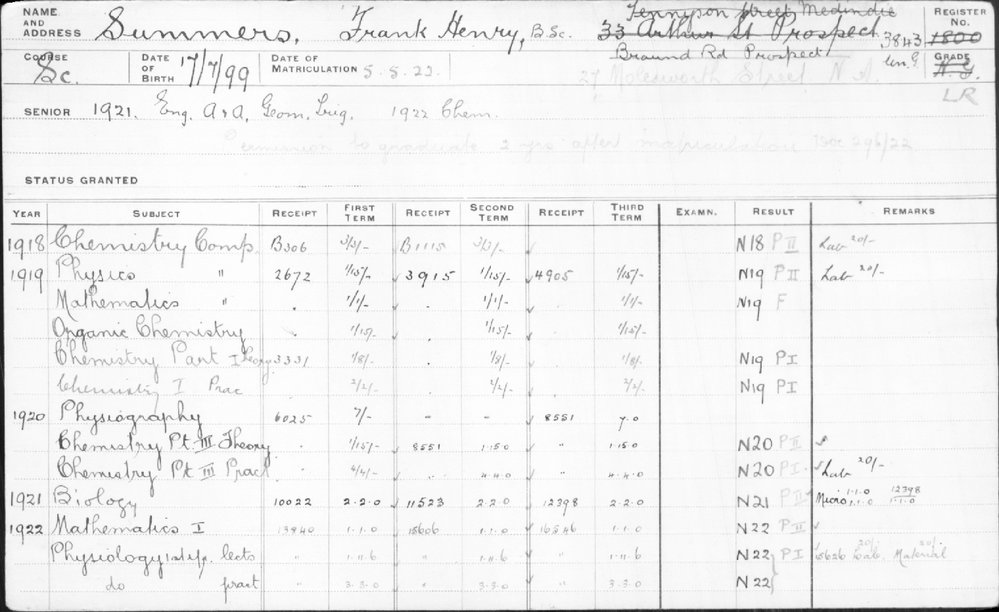 NAME AND ADDRESS Summers, Frank Henry, B.Sc. Tennyson Street, Medindie REGISTER No.
33 Arthur St Prospect 3843 1800
Braund Rd Prospect
COURSE Sc. DATE OF BIRTH 17/7/99 DATE OF MATRICULATION 5.5.22 27 Molesworth Street N.A. GRADE
LR
SENIOR 1921. Eng. A & A, Geom, Trig, 1922 Chem.
Permission to graduate 2 yrs after matriculation
STATUS GRANTED
YEAR SUBJECT RECEIPT FIRST TERM RECEIPT SECOND TERM RECEIPT THIRD TERM EXAMN. RESULT REMARKS
1918 Chemistry Comp. B306 3/3/- B1115 3/3/- N18 P II Lab 20/-
1919 Physics " 2672 1/15/- 3915 1/15/- 4905 1/15/- N19 P II Lab 20/-
Mathematics " 1/1/- 1/1/- 1/1/- N19 F
Organic Chemistry 1/15/- 1/15/- 1/15/-
Chemistry Part I Theory 3331 1/8/- 1/8/- 1/8/- N19 P I
Chemistry I Prac 2/2/- 2/2/- 2/2/- N19 P I
1920 Physiography 6025 7/- " " 8551 7.0
Chemistry Pt. III Theory 1/15/- 8551 1.15.0 " 1.15.0 N20 P II ✓
Chemistry Pt III Pract 4/4/- " 4.4.0 " 4.4.0 N20 P I ✓ Lab 20/-
1921 Biology 10022 2.2.0 11523 2.2.0 12398 2.2.0 N21 P II Micro 1.1.0 1.1.0 12398 1.1.0
1922 Mathematics I 13840 1.1.0 15606 1.1.0 16546 1.1.0 N22 P II ✓
Physiology lects " 1.11.6 " 1.11.6 " 1.11.6 N22 P I 15626 Lab. 20/- Material 20/-
do pract " 3.3.0 " 3.3.0 " 3.3.0 N22